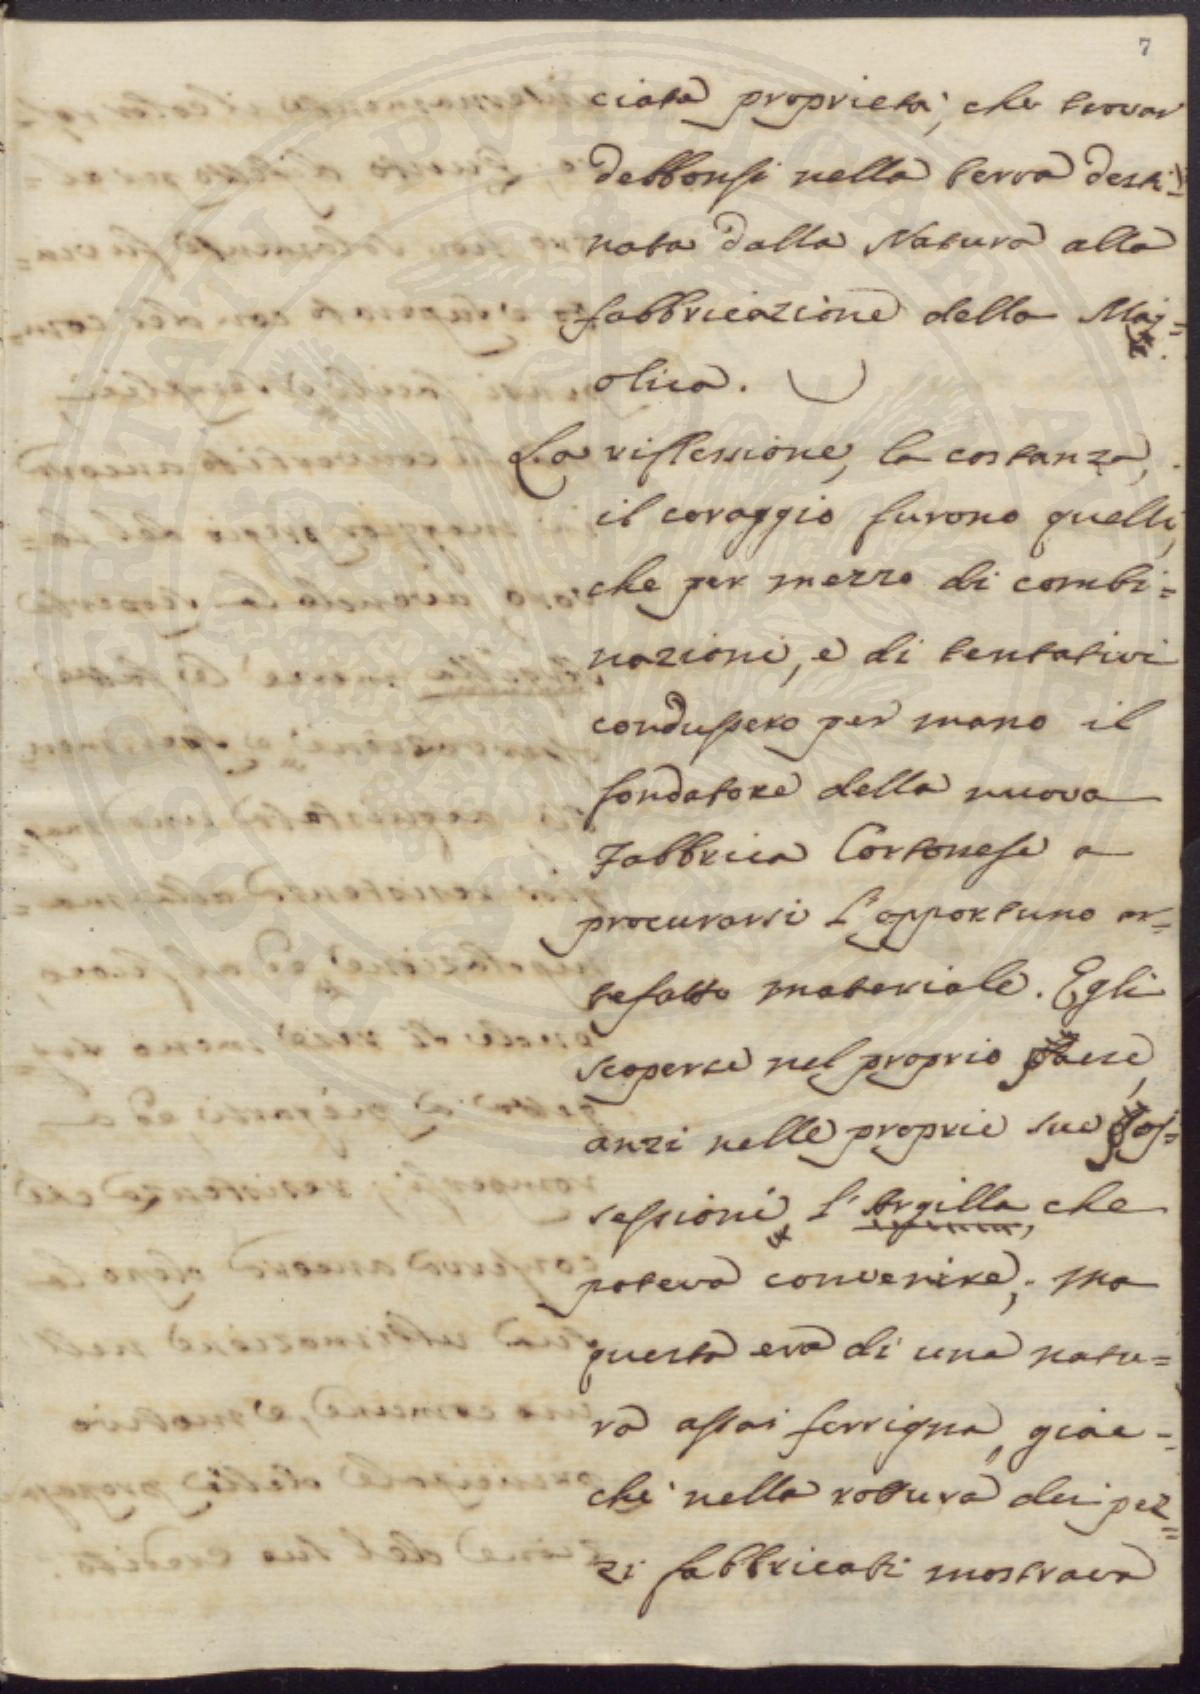 7
ciata proprietà, che trovar
debbonsi nella terra desti=
nata dalla Natura alla
fabbricazione della Maj=
olica.
La riflessione, la costanza,
il coraggio furono quelli,
che per mezzo di combi=
nazioni, e di tentativi
condussero per mano il
fondatore della nuova
Fabbrica Cortonese a
procurarsi l'opportuno ar=
tefatto materiale. Egli
scoperse nel proprio paese,
anzi nelle proprie sue pos=
sessioni, l'Argilla, che
poteva convenire; ma
questa era di una natu=
ra assai ferrigna, giac=
chè nella rottura dei pez=
zi fabbricati mostrava